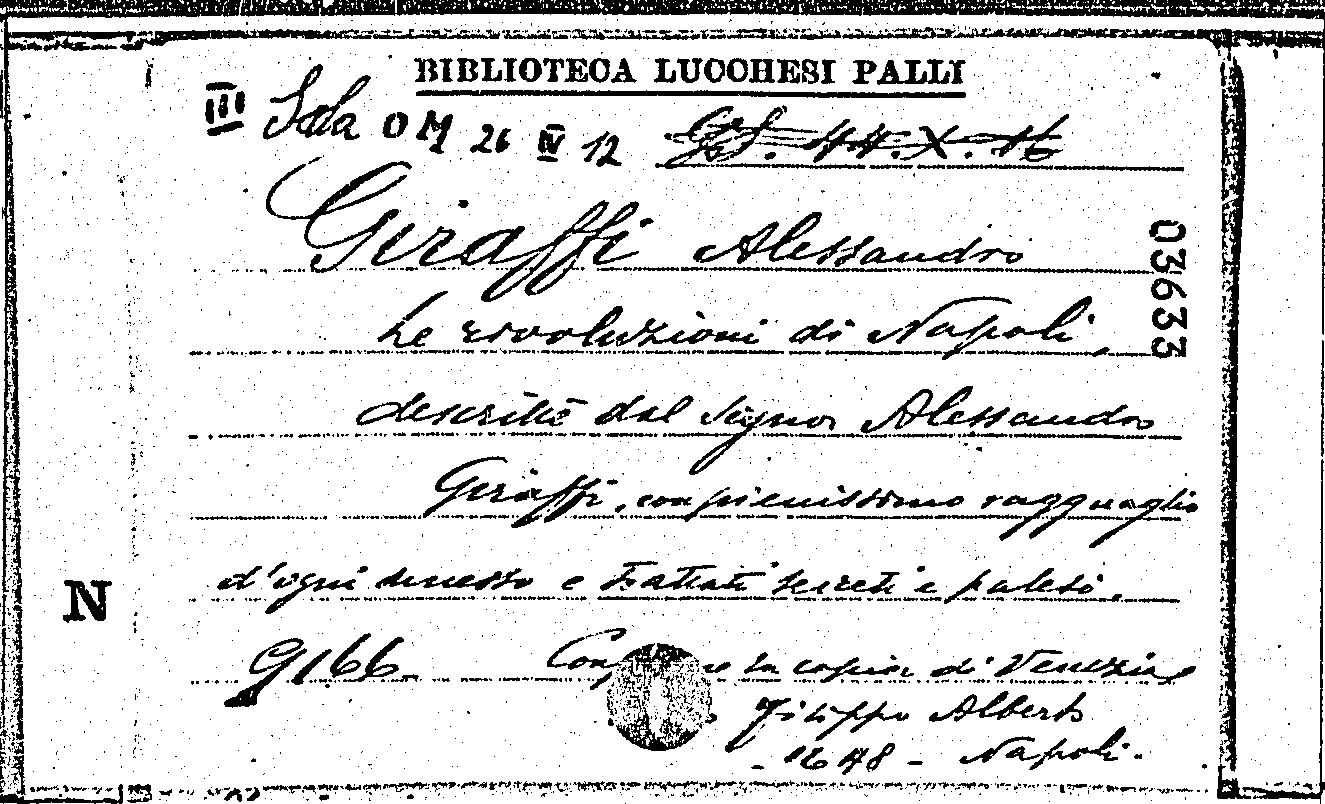 BIBLIOTECA LUCCHESI PALLI
III Sala OM 26 IV 12
Giraffi Alessandro
03633
Le rivoluzioni di Napoli,
descritte dal Signor Alessandro
Giraffi, con pienissimo ragguaglio
d'ogni successo e trattati secreti e palesi.
N
G166. la copia di Venezia
Filippo Alberto
- 1648 - Napoli.